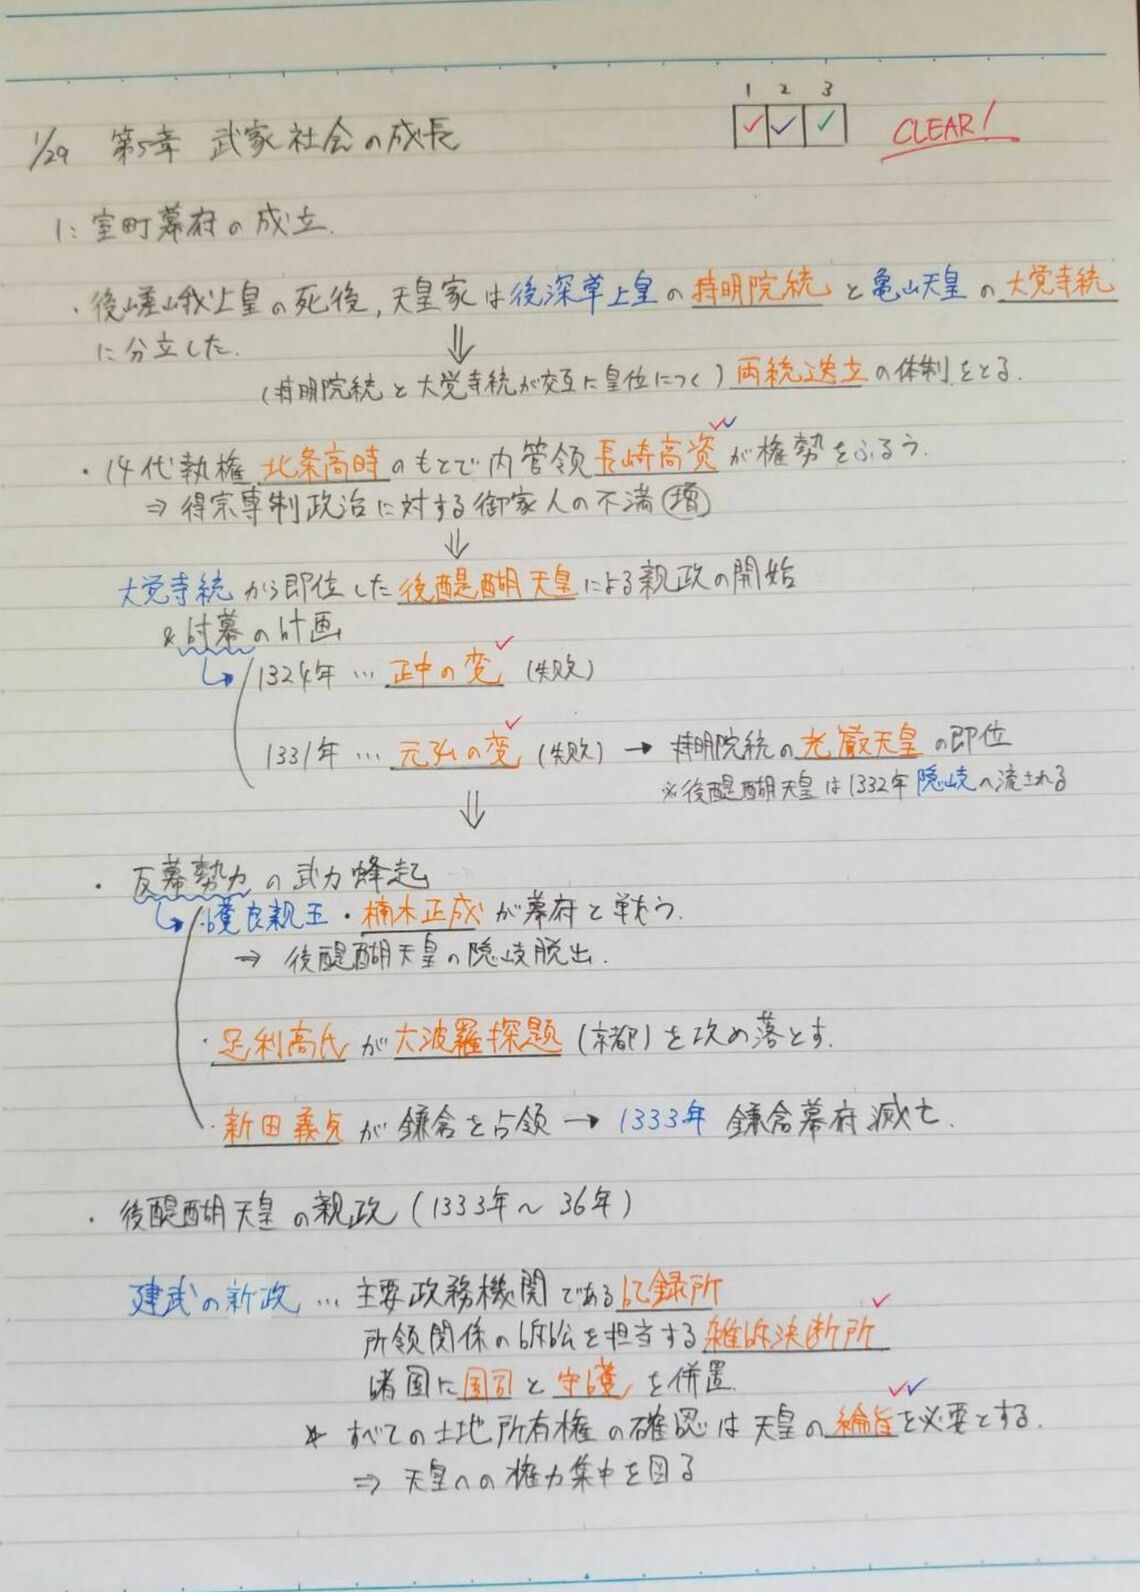 1 2 3
1/29 第5章 武家社会の成長 CLEAR!
1: 室町幕府の成立.
・後嵯峨上皇の死後, 天皇家は後深草上皇の持明院統と亀山天皇の大覚寺統
に分立した.
(持明院統と大覚寺統が交互に皇位につく) 両統迭立の体制をとる.
・14代執権 北条高時のもとで内管領長崎高資が権勢をふるう.
⇒ 得宗専制政治に対する御家人の不満 増
⇓
大覚寺統から即位した後醍醐天皇による親政の開始
& 討幕の計画
↳ 1324年 … 正中の変 (失敗)
1331年 … 元弘の変 (失敗) → 持明院統の光厳天皇の即位
※後醍醐天皇は1332年 隠岐へ流される
⇓
・反幕勢力の武力蜂起
↳ ・護良親王・楠木正成が幕府と戦う.
⇒ 後醍醐天皇の隠岐脱出.
・足利高氏が六波羅探題 (京都) を攻め落とす.
・新田義貞が鎌倉を占領 → 1333年 鎌倉幕府滅亡.
・後醍醐天皇の親政 (1333年〜36年)
建武の新政 … 主要政務機関である記録所
所領関係の訴訟を担当する雑訴決断所
諸国に国司と守護を併置.
* すべての土地所有権の確認は天皇の綸旨を必要とする.
⇒ 天皇への権力集中を図る